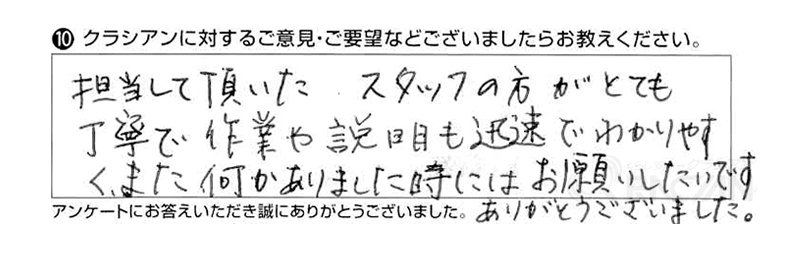 ❿ クラシアンに対するご意見・ご要望などございましたらお教えください。
担当して頂いた スタッフの方がとても
丁寧で作業や説明も迅速でわかりやす
く、また何かありました時にはお願いしたいです
アンケートにお答えいただき誠にありがとうございました。 ありがとうございました。